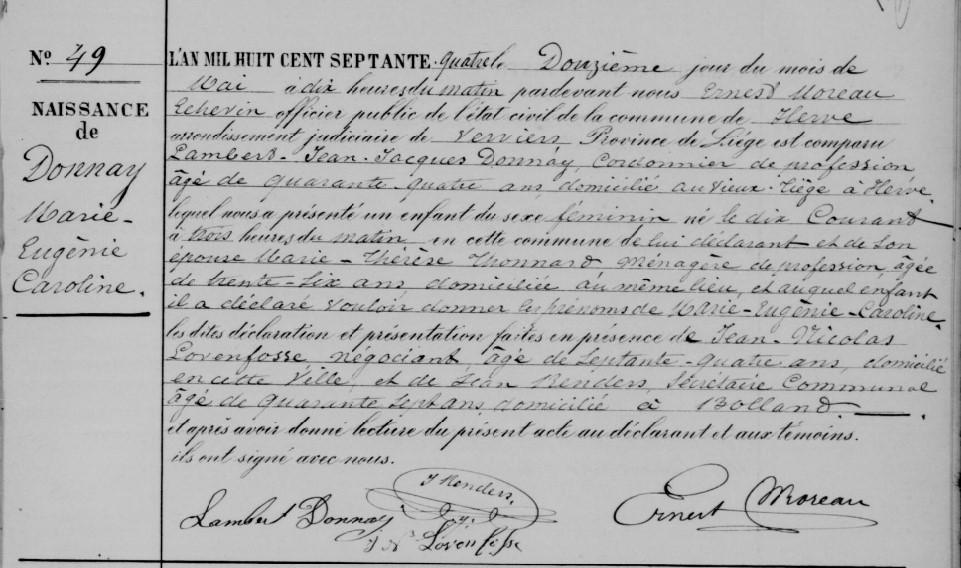 Nº 49
NAISSANCE
de
Donnay
Marie-
Eugènie
Caroline.
L'AN MIL HUIT CENT SEPTANTE-quatre le Douzième jour du mois de
Mai à dix heures du matin pardevant nous Ernest Moreau
Echevin officier public de l'état civil de la commune de Herve
arrondissement judiciaire de Verviers, Province de Liège est comparu
Lambert-Jean-Jacques Donnay, Cordonnier de profession
âgé de quarante-quatre ans, domicilié au Vieux-Liège à Herve,
lequel nous a présenté un enfant du sexe féminin né le dix Courant
à trois heures du matin en cette commune de lui déclarant et de son
épouse Marie-Thérèse Thonnard Ménagère de profession, âgée
de trente-six ans, domiciliée au même lieu, et auquel enfant
il a déclaré vouloir donner les prénoms de Marie-Eugènie-Caroline.
les dites déclaration et présentation faites en présence de Jean-Nicolas
Lovenfosse négociant, âgé de Septante-quatre ans, domicilié
en cette Ville, et de Jean Renders, Secrétaire Communal
âgé de quarante sept ans, domicilié à Bolland.
et après avoir donné lecture du présent acte au déclarant et aux témoins.
ils ont signé avec nous.
J Renders.
Lambert Donnay
Ernest Moreau
J N Lovenfosse